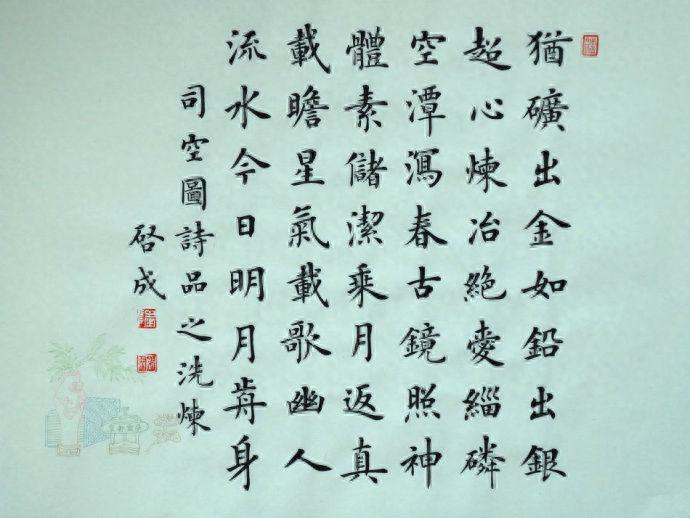 猶礦出金如鉛出銀
超心煉冶絕愛緇磷
空潭瀉春古鏡照神
體素儲潔乘月返真
載瞻星氣載歌幽人
流水今日明月歬身
司空圖詩品之洗煉
啓成